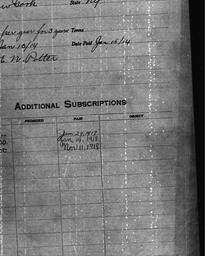 State Ny
per year for 3 years Terms
Jan 15/14 Date Paid Jan 15/14
E. M. Potter
ADDITIONAL SUBSCRIPTIONS
PROMISED PAID OBJECT
Jan 24, 1917
Jan 14, 1918
Nov 11, 1918